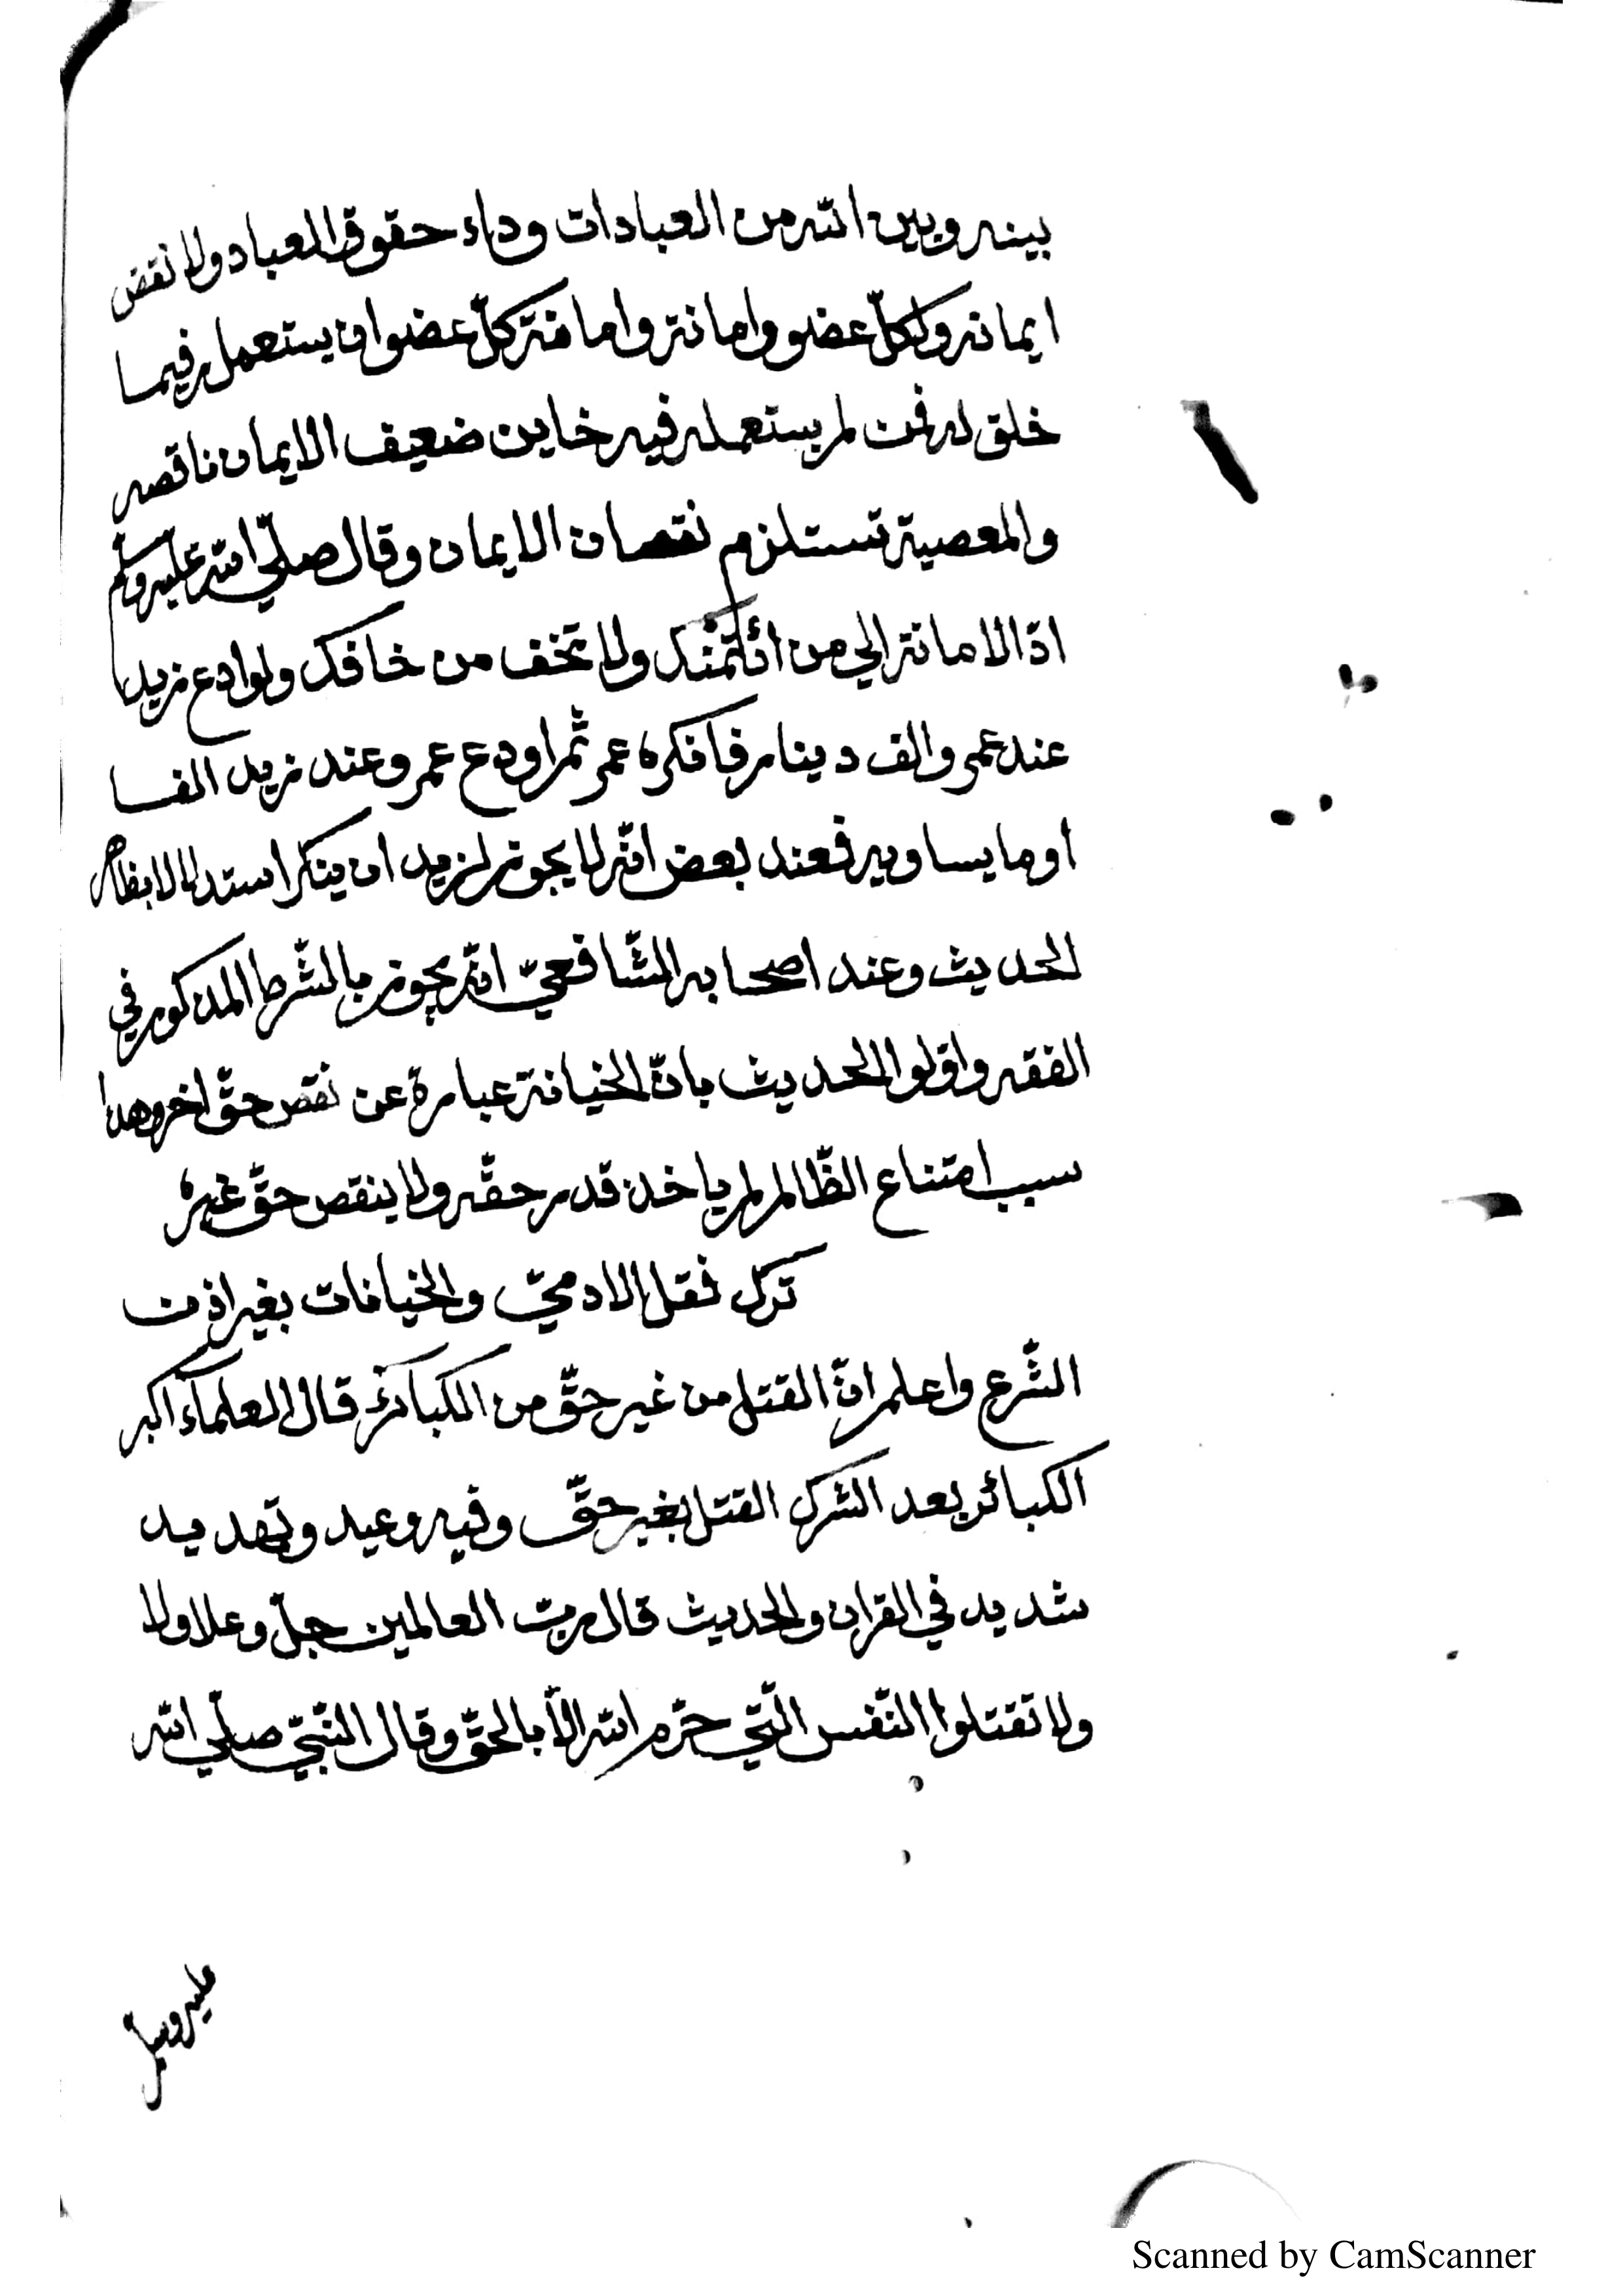 بينه وبين الله من العبادات وداء حقوق العباد ولا نقض
ايمانه ولكلّ عضو وامانته وامانة كلّ عضو ان يستعمل فيما
خلق له فمن لم يستعمله فيه خاين ضعيف الايمان ناقصه
والمعصية تستلزم نقصان الايمان وقال صلّي الله عليه وسلم
ادّ الامانة الي من ائتمنك ولا تخف من خانك ولو ادع زيد
عند عمرو الف دينار فانكره عمر ثمّ اودع عمرو عند زيد الفا
او ما يساويه فعند بعض انّه لا يجوز لزيد ان ينكر استدلالا بظاهر
الحديث وعند اصحابه الشّافعيّ انّه يجوز بالشّرط المذكور في
الفقه واوّلوا الحديث بانّ الخيانة عبارة عن نقص حقّ اخر وهذا
سبب امتناع الظّالم لم ياخذ قدر حقّه ولا ينقص حقّ غيره
ترك فقل الادميّ والخيانات بغير اذن
الشّرع واعلم انّ القتل من غير حقّ من الكبائر قال العلماء اكبر
الكبائر بعد الشرك القتل بغير حقّ وفيه وعيد وتهديد
شديد في القران والحديث قال ربّ العالمين جلّ وعلا ولا
ولا تقتلوا النّفس الّتي حرّم الله الاّ بالحقّ وقال النّبيّ صلّي الله
عليه وسلم
Scanned by CamScanner